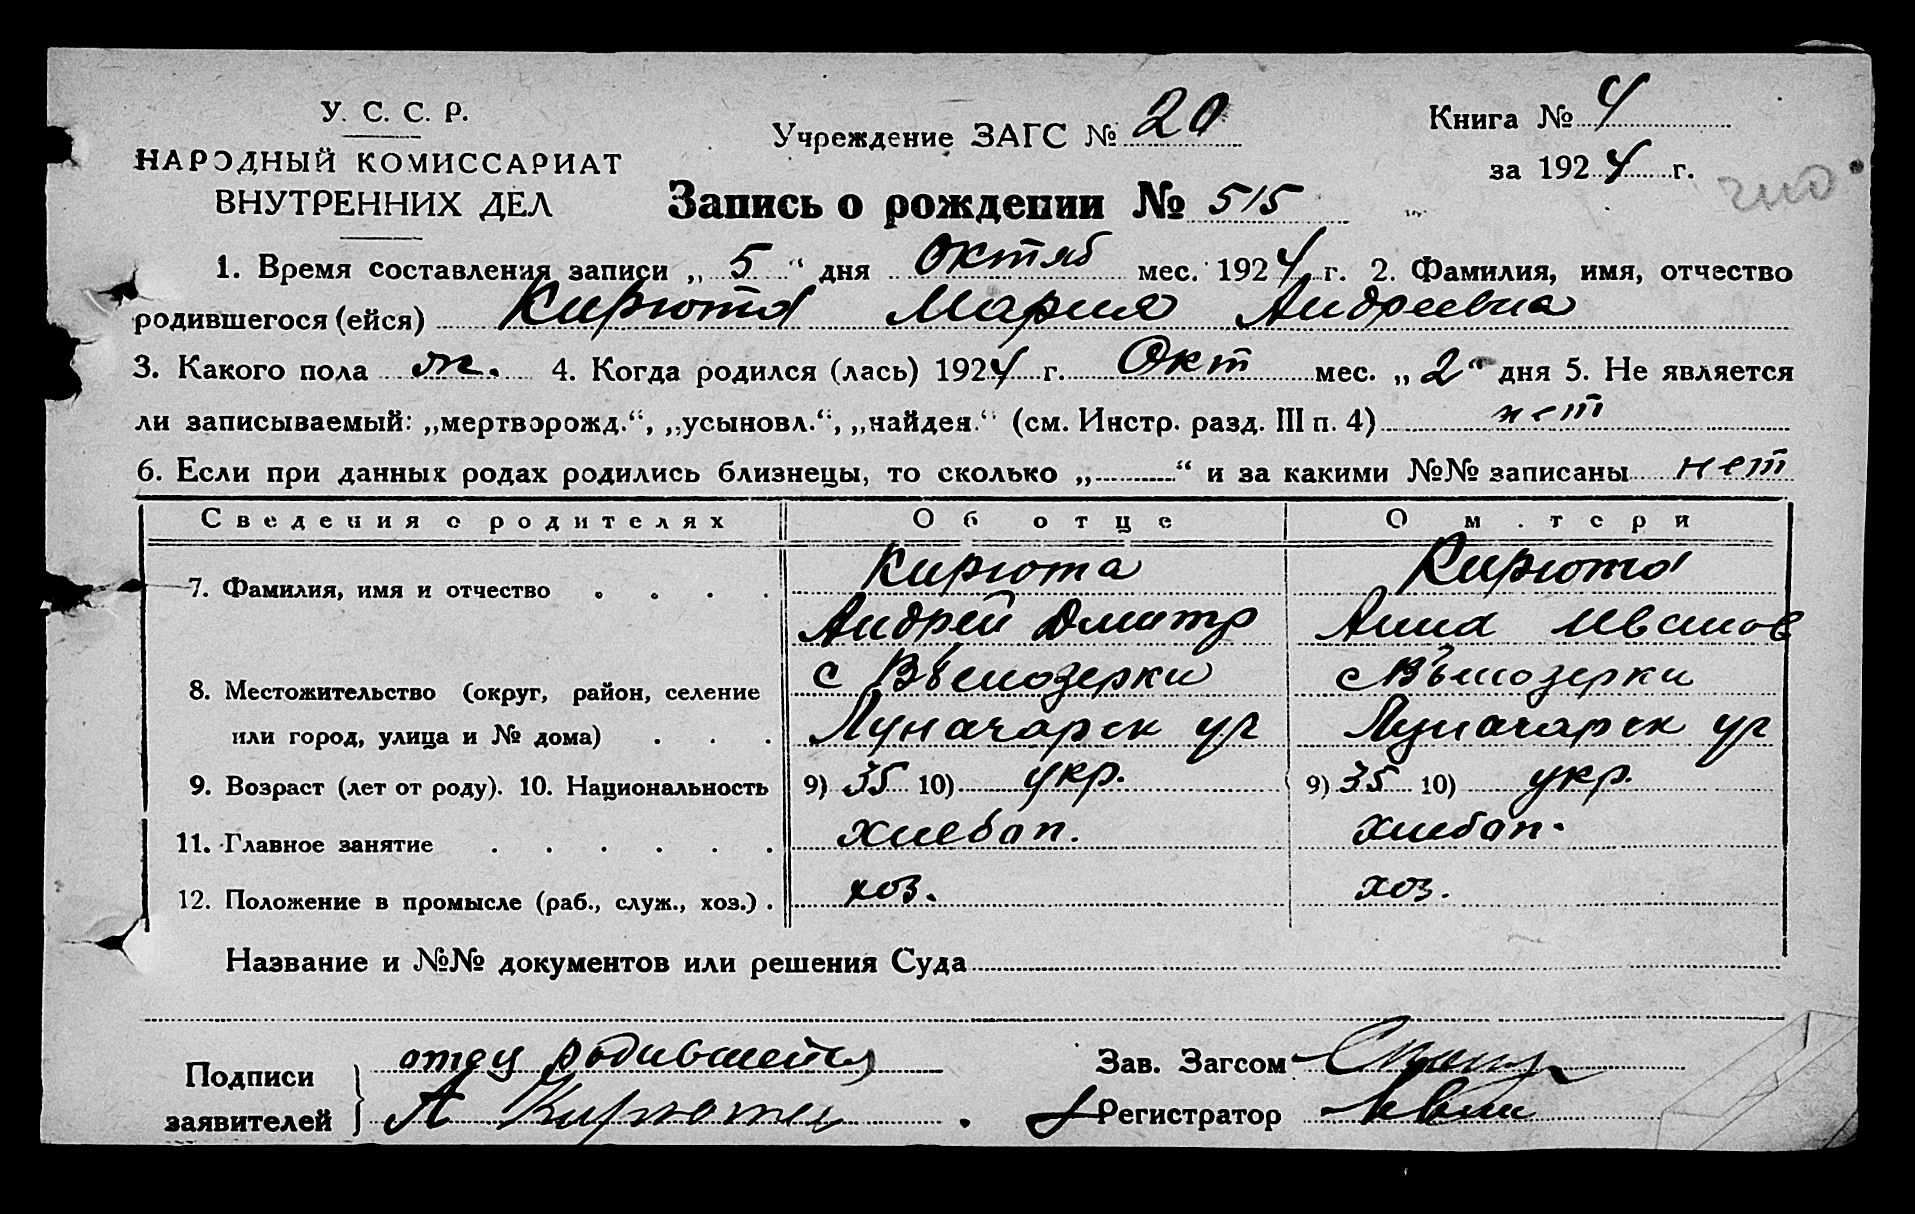 У. С. С. Р.
НАРОДНЫЙ КОМИССАРИАТ
ВНУТРЕННИХ ДЕЛ
Учреждение ЗАГС № 20
Книга № 4
за 1924 г.
Запись о рождении № 515
1. Время составления записи „ 5 “ дня Октяб мес. 1924 г. 2. Фамилия, имя, отчество
родившегося (ейся) Кирюта Мария Андреевна
3. Какого пола ж. 4. Когда родился (лась) 1924 г. Окт мес. „ 2 “ дня 5. Не является
ли записываемый: „мертворожд.“, „усыновл.“, „найден.“ (см. Инстр. разд. III п. 4) нет
6. Если при данных родах родились близнецы, то сколько „ “ и за какими №№ записаны нет
Сведения о родителях Об отце О м.тери
7. Фамилия, имя и отчество Кирюта Кирюта
Андрей Дмитр Анна Иванов
8. Местожительство (округ, район, селение с Вѣлозерки с Вѣлозерки
или город, улица и № дома) Луначарск ул Луначарск ул
9. Возраст (лет от роду). 10. Национальность 9) 35 10) укр. 9) 35 10) укр.
11. Главное занятие хлебоп. хлебоп.
12. Положение в промысле (раб., служ., хоз.) хоз. хоз.
Название и №№ документов или решения Суда
Подписи заявителей отец родившейся
А Кирюта
Зав. Загсом
Регистратор